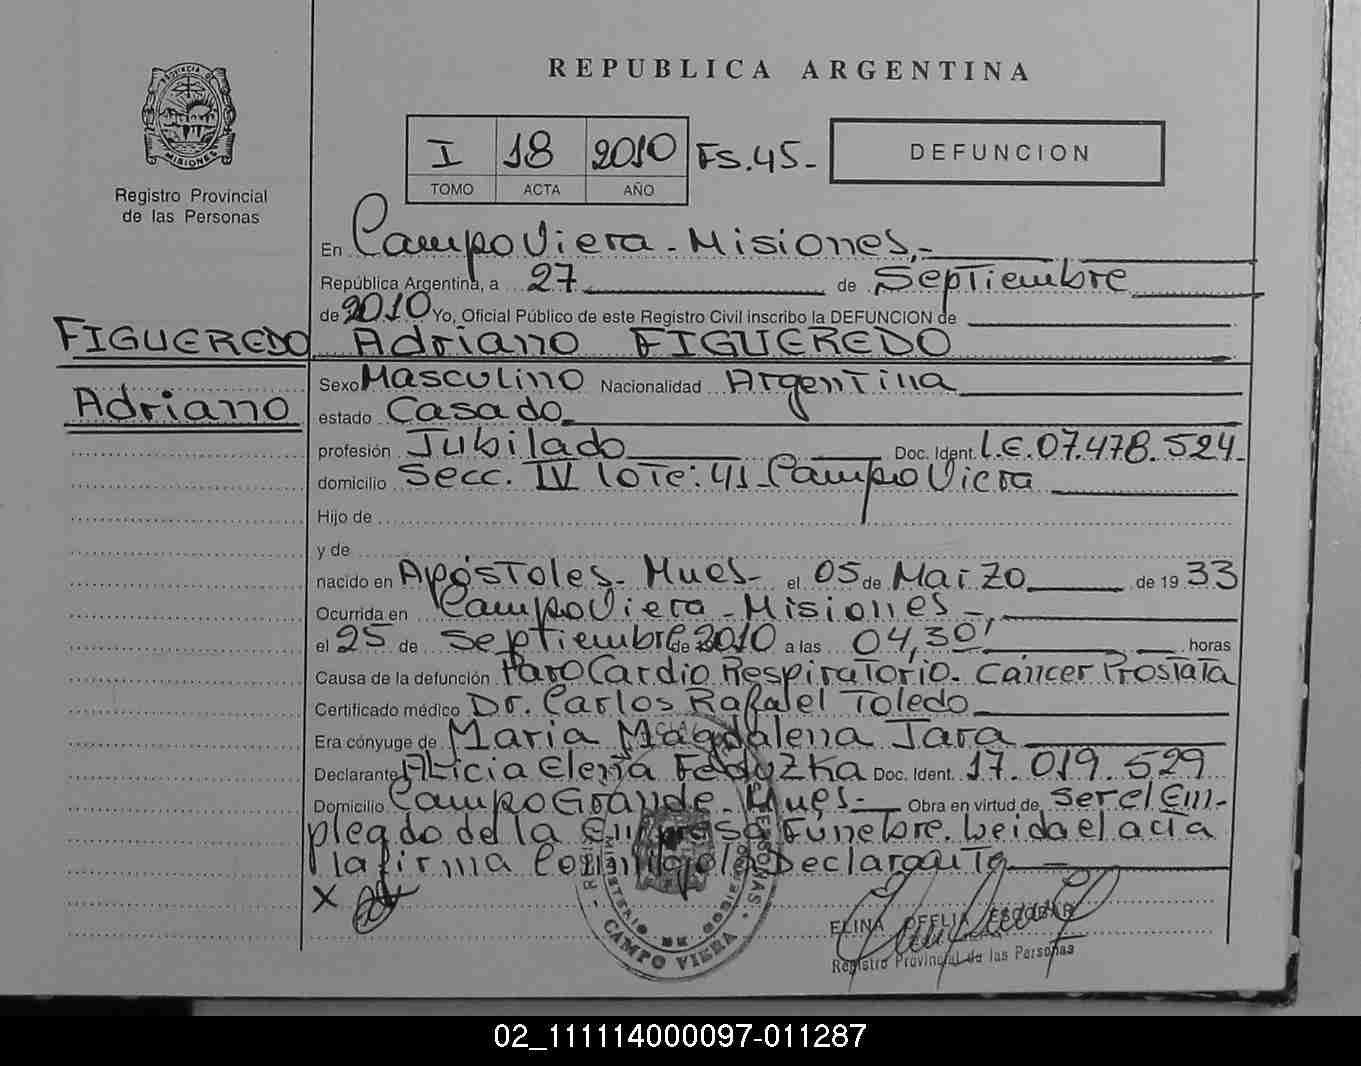 PROVINCIA DE
MISIONES
Registro Provincial
de las Personas
REPUBLICA ARGENTINA
I 18 2010 FS.45-
TOMO ACTA AÑO
DEFUNCION
En Campo Viera - Misiones,-
República Argentina, a 27 de Septiembre
de 2010 Yo, Oficial Público de este Registro Civil inscribo la DEFUNCION de
FIGUEREDO Adriano FIGUEREDO
Adriano
Sexo Masculino Nacionalidad Argentina
estado Casado
profesión Jubilado Doc. Ident. L.E. 07.478.524-
domicilio Secc. IV lote: 41 - Campo Viera
Hijo de
y de
nacido en Apóstoles - Mnes - el 05 de Marzo de 19 33
Ocurrida en Campo Viera - Misiones -,
el 25 de Septiembre de 2010 a las 04,30' horas
Causa de la defunción Paro Cardio Respiratorio. Cáncer Prostata
Certificado médico Dr. Carlos Rafael Toledo
Era cónyuge de Maria Magdalena Jara
Declarante Alicia Elena Fedyzka Doc. Ident. 17.019.529
Domicilio Campo Grande - Mnes - Obra en virtud de ser el Em-
plegdo de la Empresa Fúnebre. Leida el acta
la firma Conmigo la Declarante
X
CAMPO VIERA
ELINA OFELIA ESCOBAR
Registro Provincial de las Personas
02_111114000097-011287